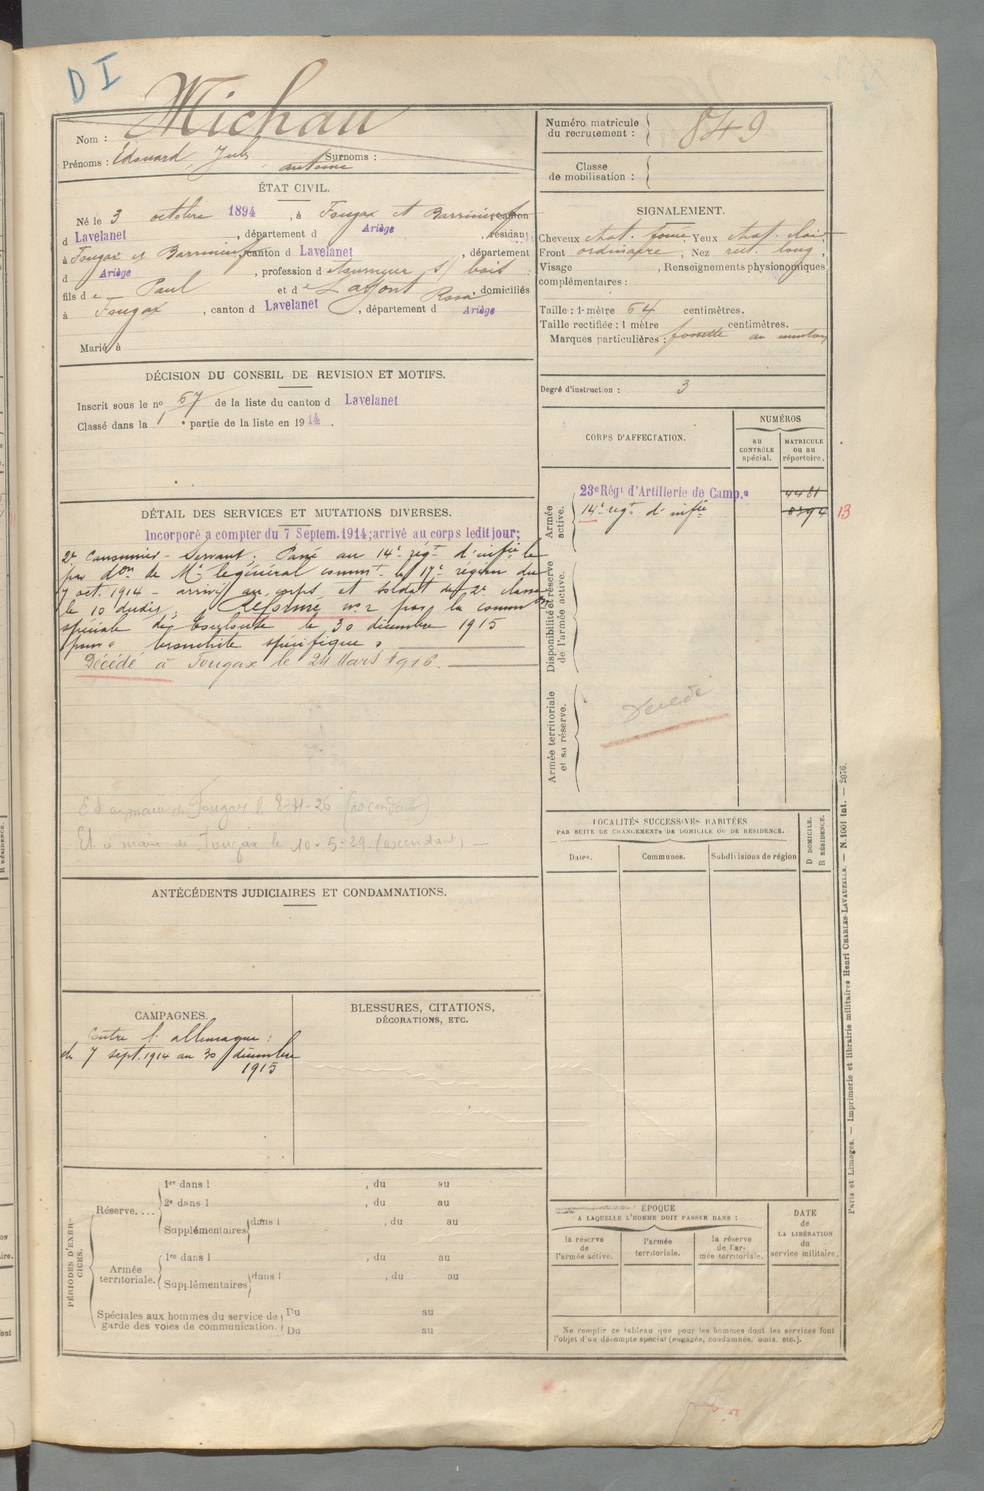 D I
Michau
Nom :
Prénoms : Edouard, Jules, antoine Surnoms :
ÉTAT CIVIL.
Né le 3 octobre 1894, à Fougax et Barrineuf, canton
d Lavelanet, département d Ariège, résidant
à Fougax et Barrineuf, canton d Lavelanet, département
d Ariège, profession d tourneur s/ bois
fils de Paul et de Laffont Rosa, domiciliés
à Fougax, canton d Lavelanet, département d Ariège
Marié à
DÉCISION DU CONSEIL DE REVISION ET MOTIFS.
Inscrit sous le no 57 de la liste du canton d Lavelanet
Classé dans la 1e partie de la liste en 1914.
DÉTAIL DES SERVICES ET MUTATIONS DIVERSES.
Incorporé a compter du 7 Septem. 1914; arrivé au corps ledit jour;
2e Canonnier - Servant. Passé au 14e régt d'infie le
par don de Mr le général commt la 17e région du
7 oct. 1914 - arrivé au corps et soldat de 2e classe
le 10 dudit. Réformé no 2 par la common
spéciale de Toulouse le 30 décembre 1915
pour bronchite spécifique.
Décédé à Fougax le 24 Mars 1916.
Et à maire de Fougax le 8-11-26 (ascendant)
Et à maire de Fougax le 10-5-29 (ascendant)
ANTÉCÉDENTS JUDICIAIRES ET CONDAMNATIONS.
CAMPAGNES.
Contre l'allemagne :
du 7 sept. 1914 au 30 décembre
1915
BLESSURES, CITATIONS,
DÉCORATIONS, ETC.
PÉRIODES D'EXERCICES.
Réserve....
1re dans l , du au
2e dans l , du au
Supplémentaires dans l , du au
Armée
territoriale.
1re dans l , du au
Supplémentaires dans l , du au
Spéciales aux hommes du service de
garde des voies de communication.
Du au
Du au
Numéro matricule
du recrutement : 849
Classe
de mobilisation :
SIGNALEMENT.
Cheveux chat. foncé, Yeux chat. clair,
Front ordinaire, Nez rect. long,
Visage , Renseignements physionomiques
complémentaires :
Taille : 1 mètre 64 centimètres.
Taille rectifiée : 1 mètre centimètres.
Marques particulières : fossette au menton
Degré d'instruction : 3
CORPS D'AFFECTATION.
NUMÉROS
AU
CONTRÔLE
spécial.
MATRICULE
OU AU
répertoire.
Armée
active.
23e Régt d'Artillerie de Camp.e 4481
14e régt d'infie 13
Disponibilité et réserve
de l'armée active.
Armée territoriale
et sa réserve.
Décédé
LOCALITÉS SUCCESSIVES HABITÉES
PAR SUITE DE CHANGEMENTS DE DOMICILE OU DE RÉSIDENCE.
Dates.
Communes.
Subdivisions de région
D DOMICILE.
R RÉSIDENCE.
ÉPOQUE
A LAQUELLE L'HOMME DOIT PASSER DANS :
la réserve
de
l'armée active.
l'armée
territoriale.
la réserve
de l'ar-
mée territoriale.
DATE
de
LA LIBÉRATION
du
service militaire.
Ne remplir ce tableau que pour les hommes dont les services font
l'objet d'un décompte spécial (engagés, condamnés, omis, etc.).
Paris et Limoges. — Imprimerie et librairie militaires Henri CHARLES-LAVAUZELLE. — N. 1001 int. — 2076.
R RÉSIDENCE.